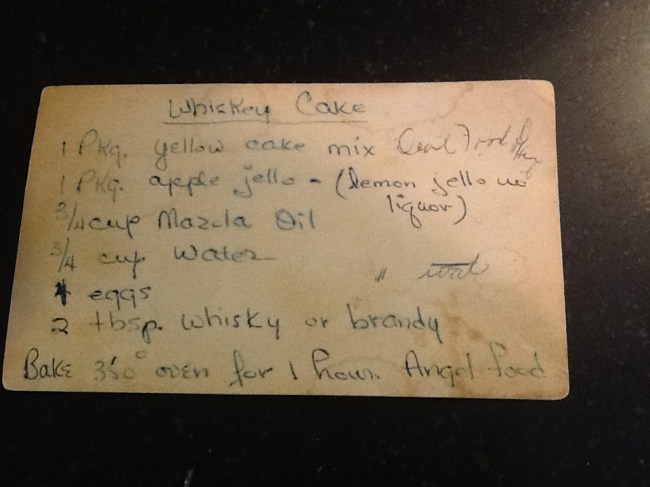 Whiskey Cake
1 Pkg. yellow cake mix
1 Pkg. apple jello - (lemon jello no
liquor)
3/4 cup Mazola Oil
3/4 cup Water
4 eggs
2 tbsp. whisky or brandy
Bake 350° oven for 1 hour. Angel food